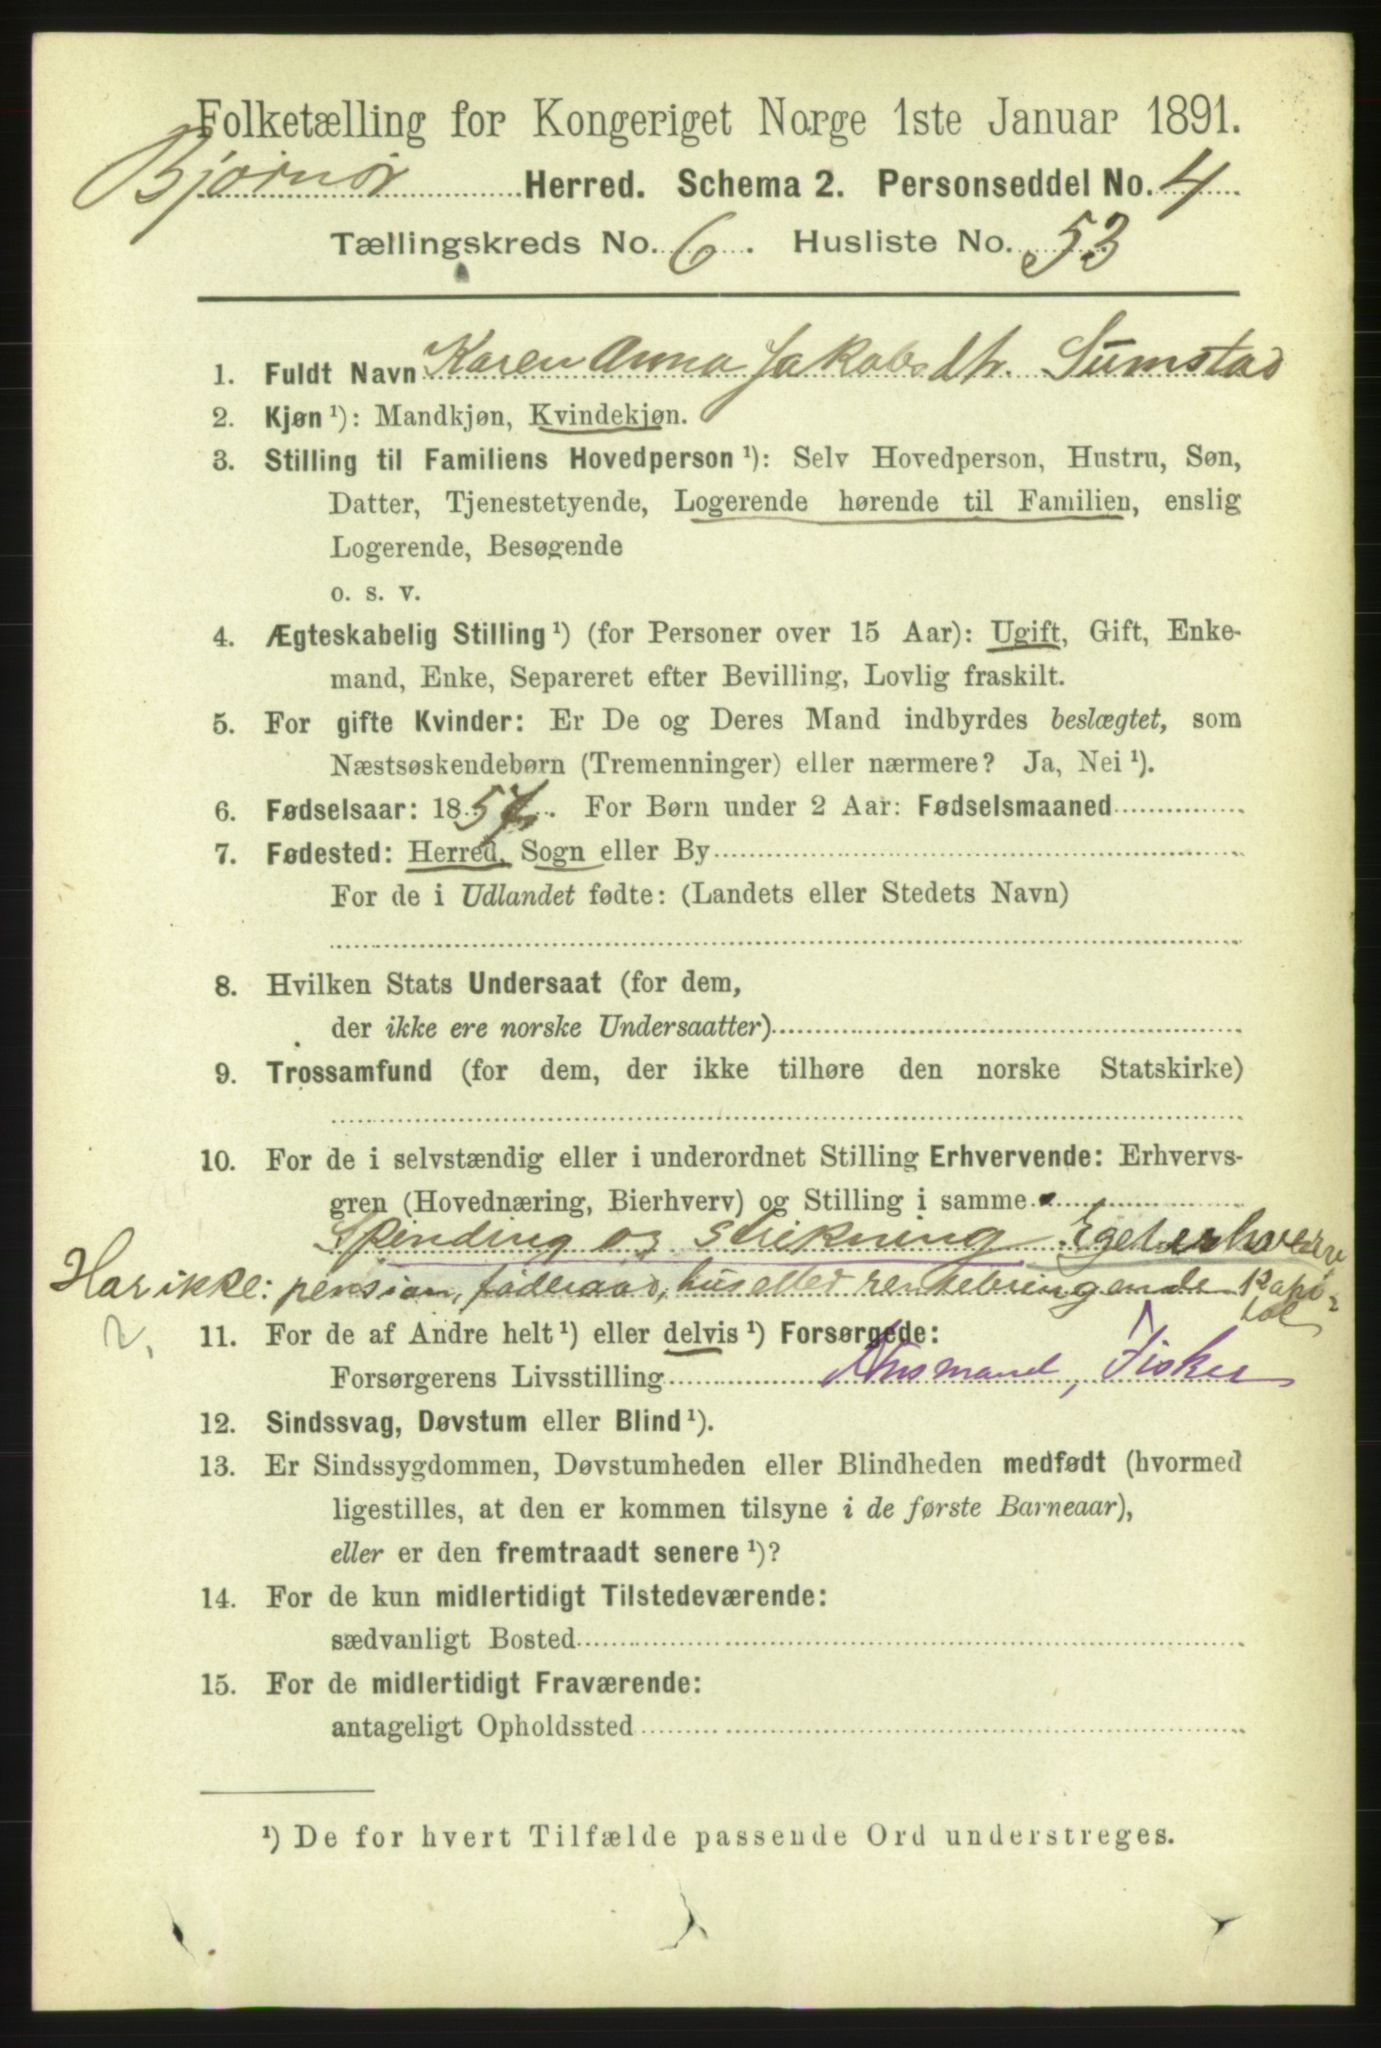 Folketælling for Kongeriget Norge 1ste Januar 1891.
Bjørnør Herred. Schema 2. Personseddel No. 4
Tællingskreds No. 6. Husliste No. 53
1. Fuldt Navn Karen Anna Jakobsdtr. Sumstad
2. Kjøn ¹): Mandkjøn, Kvindekjøn.
3. Stilling til Familiens Hovedperson ¹): Selv Hovedperson, Hustru, Søn,
Datter, Tjenestetyende, Logerende hørende til Familien, enslig
Logerende, Besøgende
o. s. v.
4. Ægteskabelig Stilling ¹) (for Personer over 15 Aar): Ugift, Gift, Enke-
mand, Enke, Separeret efter Bevilling, Lovlig fraskilt.
5. For gifte Kvinder: Er De og Deres Mand indbyrdes beslægtet, som
Næstsøskendebørn (Tremenninger) eller nærmere? Ja, Nei ¹).
6. Fødselsaar: 1857. For Børn under 2 Aar: Fødselsmaaned
7. Fødested: Herred, Sogn eller By
For de i Udlandet fødte: (Landets eller Stedets Navn)
8. Hvilken Stats Undersaat (for dem,
der ikke ere norske Undersaatter)
9. Trossamfund (for dem, der ikke tilhøre den norske Statskirke)
10. For de i selvstændig eller i underordnet Stilling Erhvervende: Erhvervs-
gren (Hovednæring, Bierhverv) og Stilling i samme
Spinding og Strikning Eget erhverv
Har ikke: pension, føderaad, hus eller rentebringende Kapi-
tal
2.
11. For de af Andre helt ¹) eller delvis ¹) Forsørgede:
Forsørgerens Livsstilling Husmand, Fisker
12. Sindssvag, Døvstum eller Blind ¹).
13. Er Sindssygdommen, Døvstumheden eller Blindheden medfødt (hvormed
ligestilles, at den er kommen tilsyne i de første Barneaar),
eller er den fremtraadt senere ¹)?
14. For de kun midlertidigt Tilstedeværende:
sædvanligt Bosted
15. For de midlertidigt Fraværende:
antageligt Opholdssted
¹) De for hvert Tilfælde passende Ord understreges.